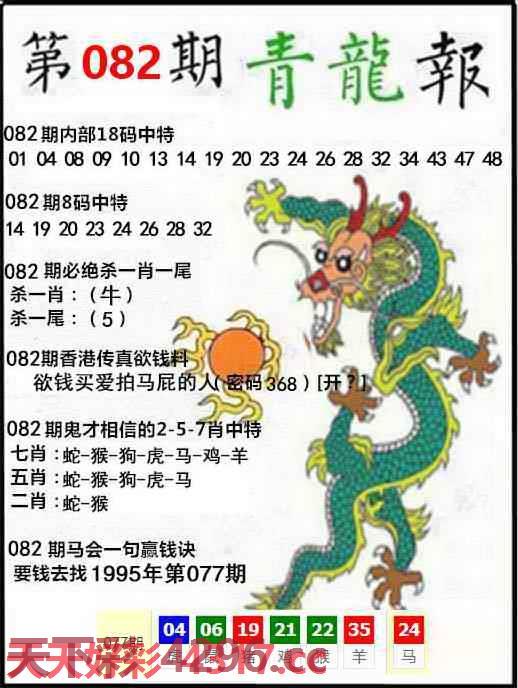 第082期青龍報
082期内部18码中特
01 04 08 09 10 13 14 19 20 23 24 26 28 32 34 43 47 48
082期8码中特
14 19 20 23 24 26 28 32
082 期必绝杀一肖一尾
杀一肖：（牛）
杀一尾：（5）
082期香港传真欲钱料
欲钱买爱拍马屁的人(密码368)[开？]
082期鬼才相信的2-5-7肖中特
七肖：蛇-猴-狗-虎-马-鸡-羊
五肖：蛇-猴-狗-虎-马
二肖：蛇-猴
082 期马会一句赢钱诀
要钱去找 1995年第077期
077期 04 06 19 21 22 35 24
虎 鼠 猪 鸡 猴 羊 马
天天好彩44296.7.cc